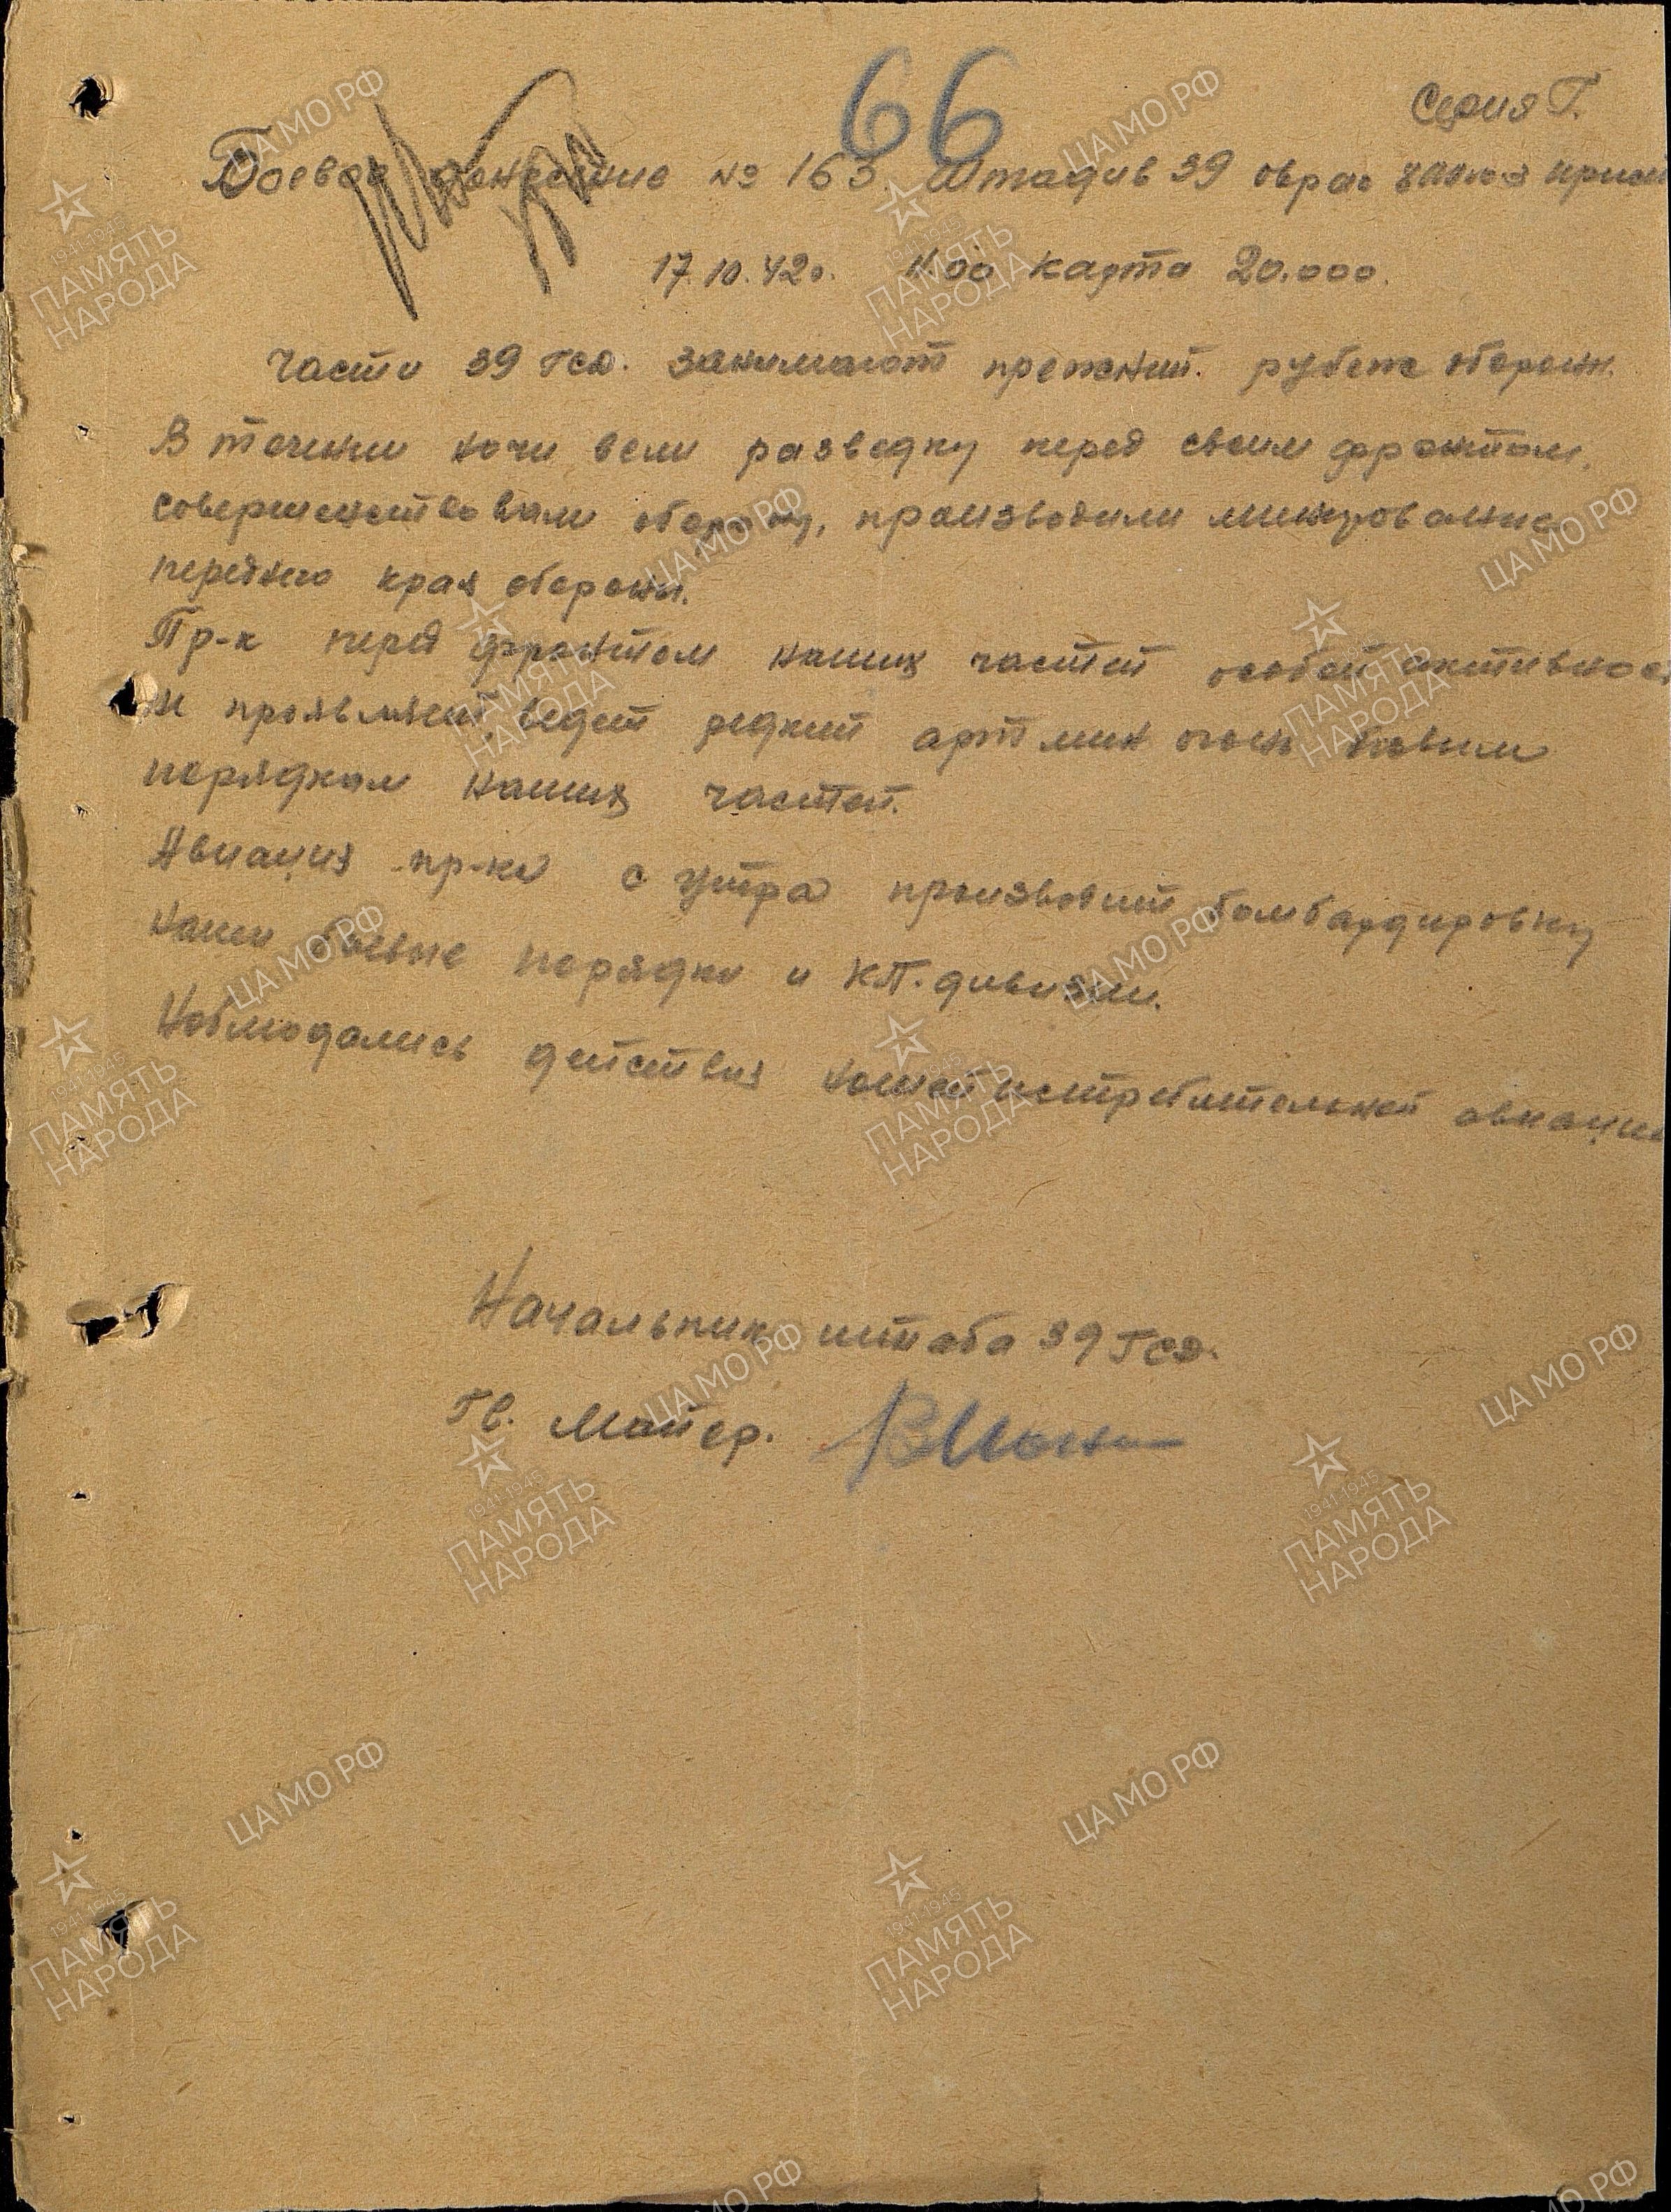 66
Серия Г.
Боевое донесение № 163 Штадив 39 овраг
17.10.42г. 11.00 карта 20.000.
Части 39 гсд. занимают прежний. рубеж оборон.
В течении ночи вели разведку перед своим фронтом,
совершенствовали оборону, производили минирование
переднего края обороны.
Пр-к перед фронтом наших частей особой активнос
не проявляет, ведет редкий арт мин огонь боевым
порядкам наших частей.
Авиация пр-ка с утра производит бомбардировку
наши боевые порядки и КП. дивизии.
Наблюдались действия нашей истребительной авиации
Начальник штаба 39 ГСД.
Гв. Майор.